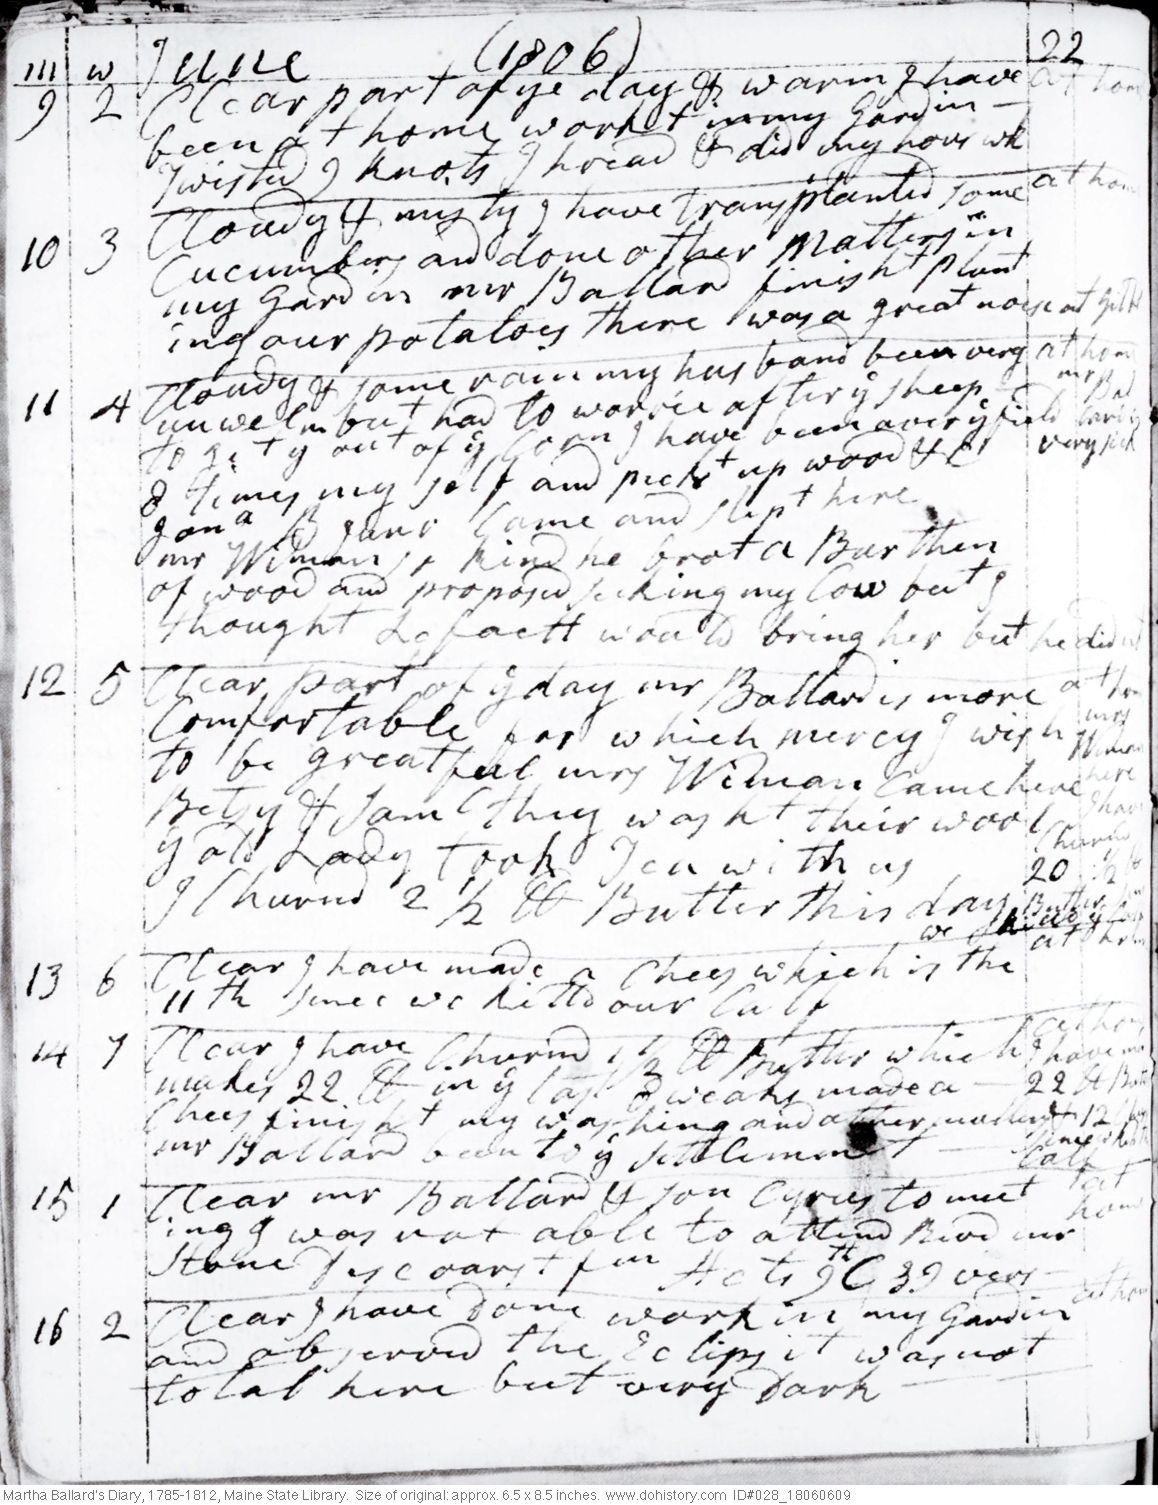 m w June (1806) 22
9 2 Clear part of ye day & warm I have at home
been at home workt in my Gardin
Twisted 7 knots Thread & did my hous wk
10 3 Cloudy & misty I have transplanted some at home
Cucumbers and done other Matters in
my Gardin mr Ballard finisht plant
ing our potatoes there was a great noise at
11 4 Cloudy & some rain my husband been very at home
unwell but had to worrie after ye sheep mr Bal
to get ym out of ye Corn I have been over ye field
8 times my self and pickt up wood &C very sick
Jona B Junr Came and slept here
mr Wiman so kind he brot a Burthen
of wood and proposd seeking my Cow but I
thought Lafaett would bring her but he did nt
12 5 Clear part of ye day mr Ballard is more at home
Comfortable for which mercy I wish mrs
to be greatful mrs Wiman Came here Wiman
Betsy & Saml they washt their wool here I have
ye old Lady took Tea with us Churnd
I Churnd 2 1/2 lb Butter this day 20 1/2 lb
we Butter
13 6 Clear I have made a Chees which is the at home
11th since we killd our Calf
14 7 Clear I have Churnd 1 1/2 lb Butter which at home
makes 22 lb in ye last 8 weaks made a I have
Chees finisht my washing and other matters 22 lb Butter
mr Ballard been to ye settlement & 12 Chees since
Calf
15 1 Clear mr Ballard & son Cyrus to meet at
ing I was not able to attend Revd mr home
Stone Descoarst fm Acts 9th C 39 vers
16 2 Clear I have Done work in my Gardin at home
and observd the Eclips it was not
total here but very Dark
Martha Ballard's Diary, 1785-1812, Maine State Library. Size of original: approx. 6.5 x 8.5 inches. www.dohistory.com ID#028_18060609